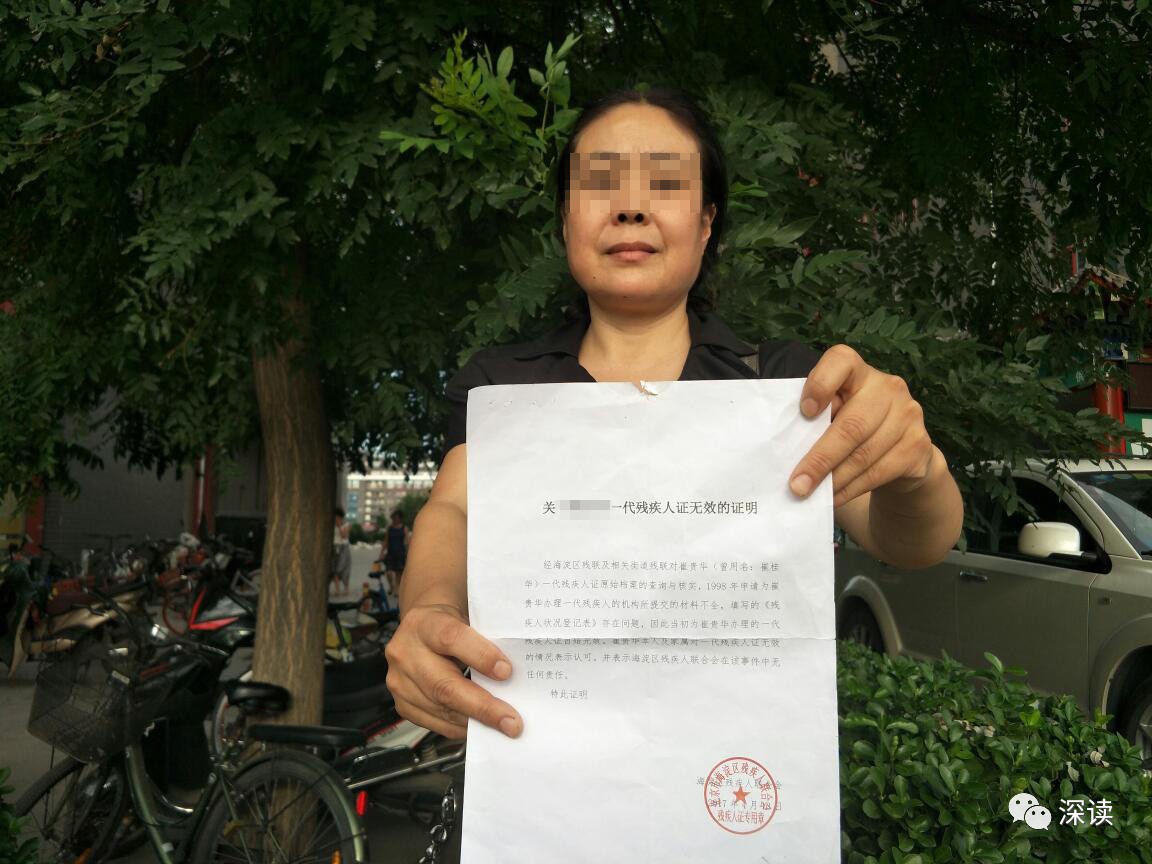 关 一代残疾人证无效的证明
经海淀区残联及相关街道残联对崔贵华（曾用名：崔桂
华）一代残疾人证原始档案的查询与核实，1998年申请为崔
贵华办理一代残疾人的机构所提交的材料不全，填写的《残
疾人状况登记表》存在问题，因此当初为崔贵华办理的一代
残疾人证自始无效。崔贵华本人及家属对一代残疾人证无效
的情况表示认可。并表示海淀区残疾人联合会在该事件中无
任何责任。
特此证明
北京市海淀区残疾人联合会
残疾人证专用章
深读